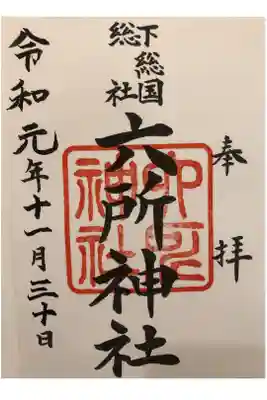 奉拝
下総国
総社
六所神社
令和元年十一月三十日